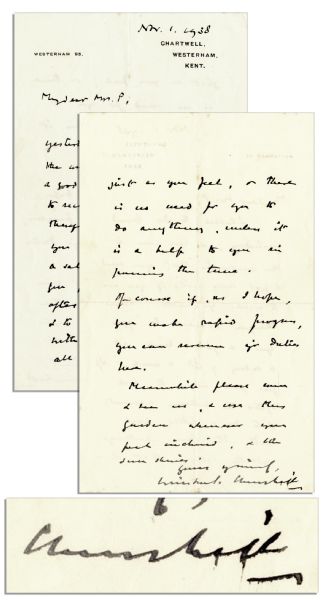 Nov. 1. 1938
WESTERHAM 93.
CHARTWELL,
WESTERHAM,
KENT.
My dear Mrs. P,
yesterd
the w
a good
to
you
a
you,
after
& to
all
just as you feel, or there
is no need for you to
do anything, unless it
is a help to you in
passing the time.
Of course if, as I hope,
you make rapid progress,
you can resume yr duties
here.
Meanwhile please come
& see us, & use this
garden whenever you
feel inclined, & the
sun shines.
Yours
Winston S. Churchill
Churchill